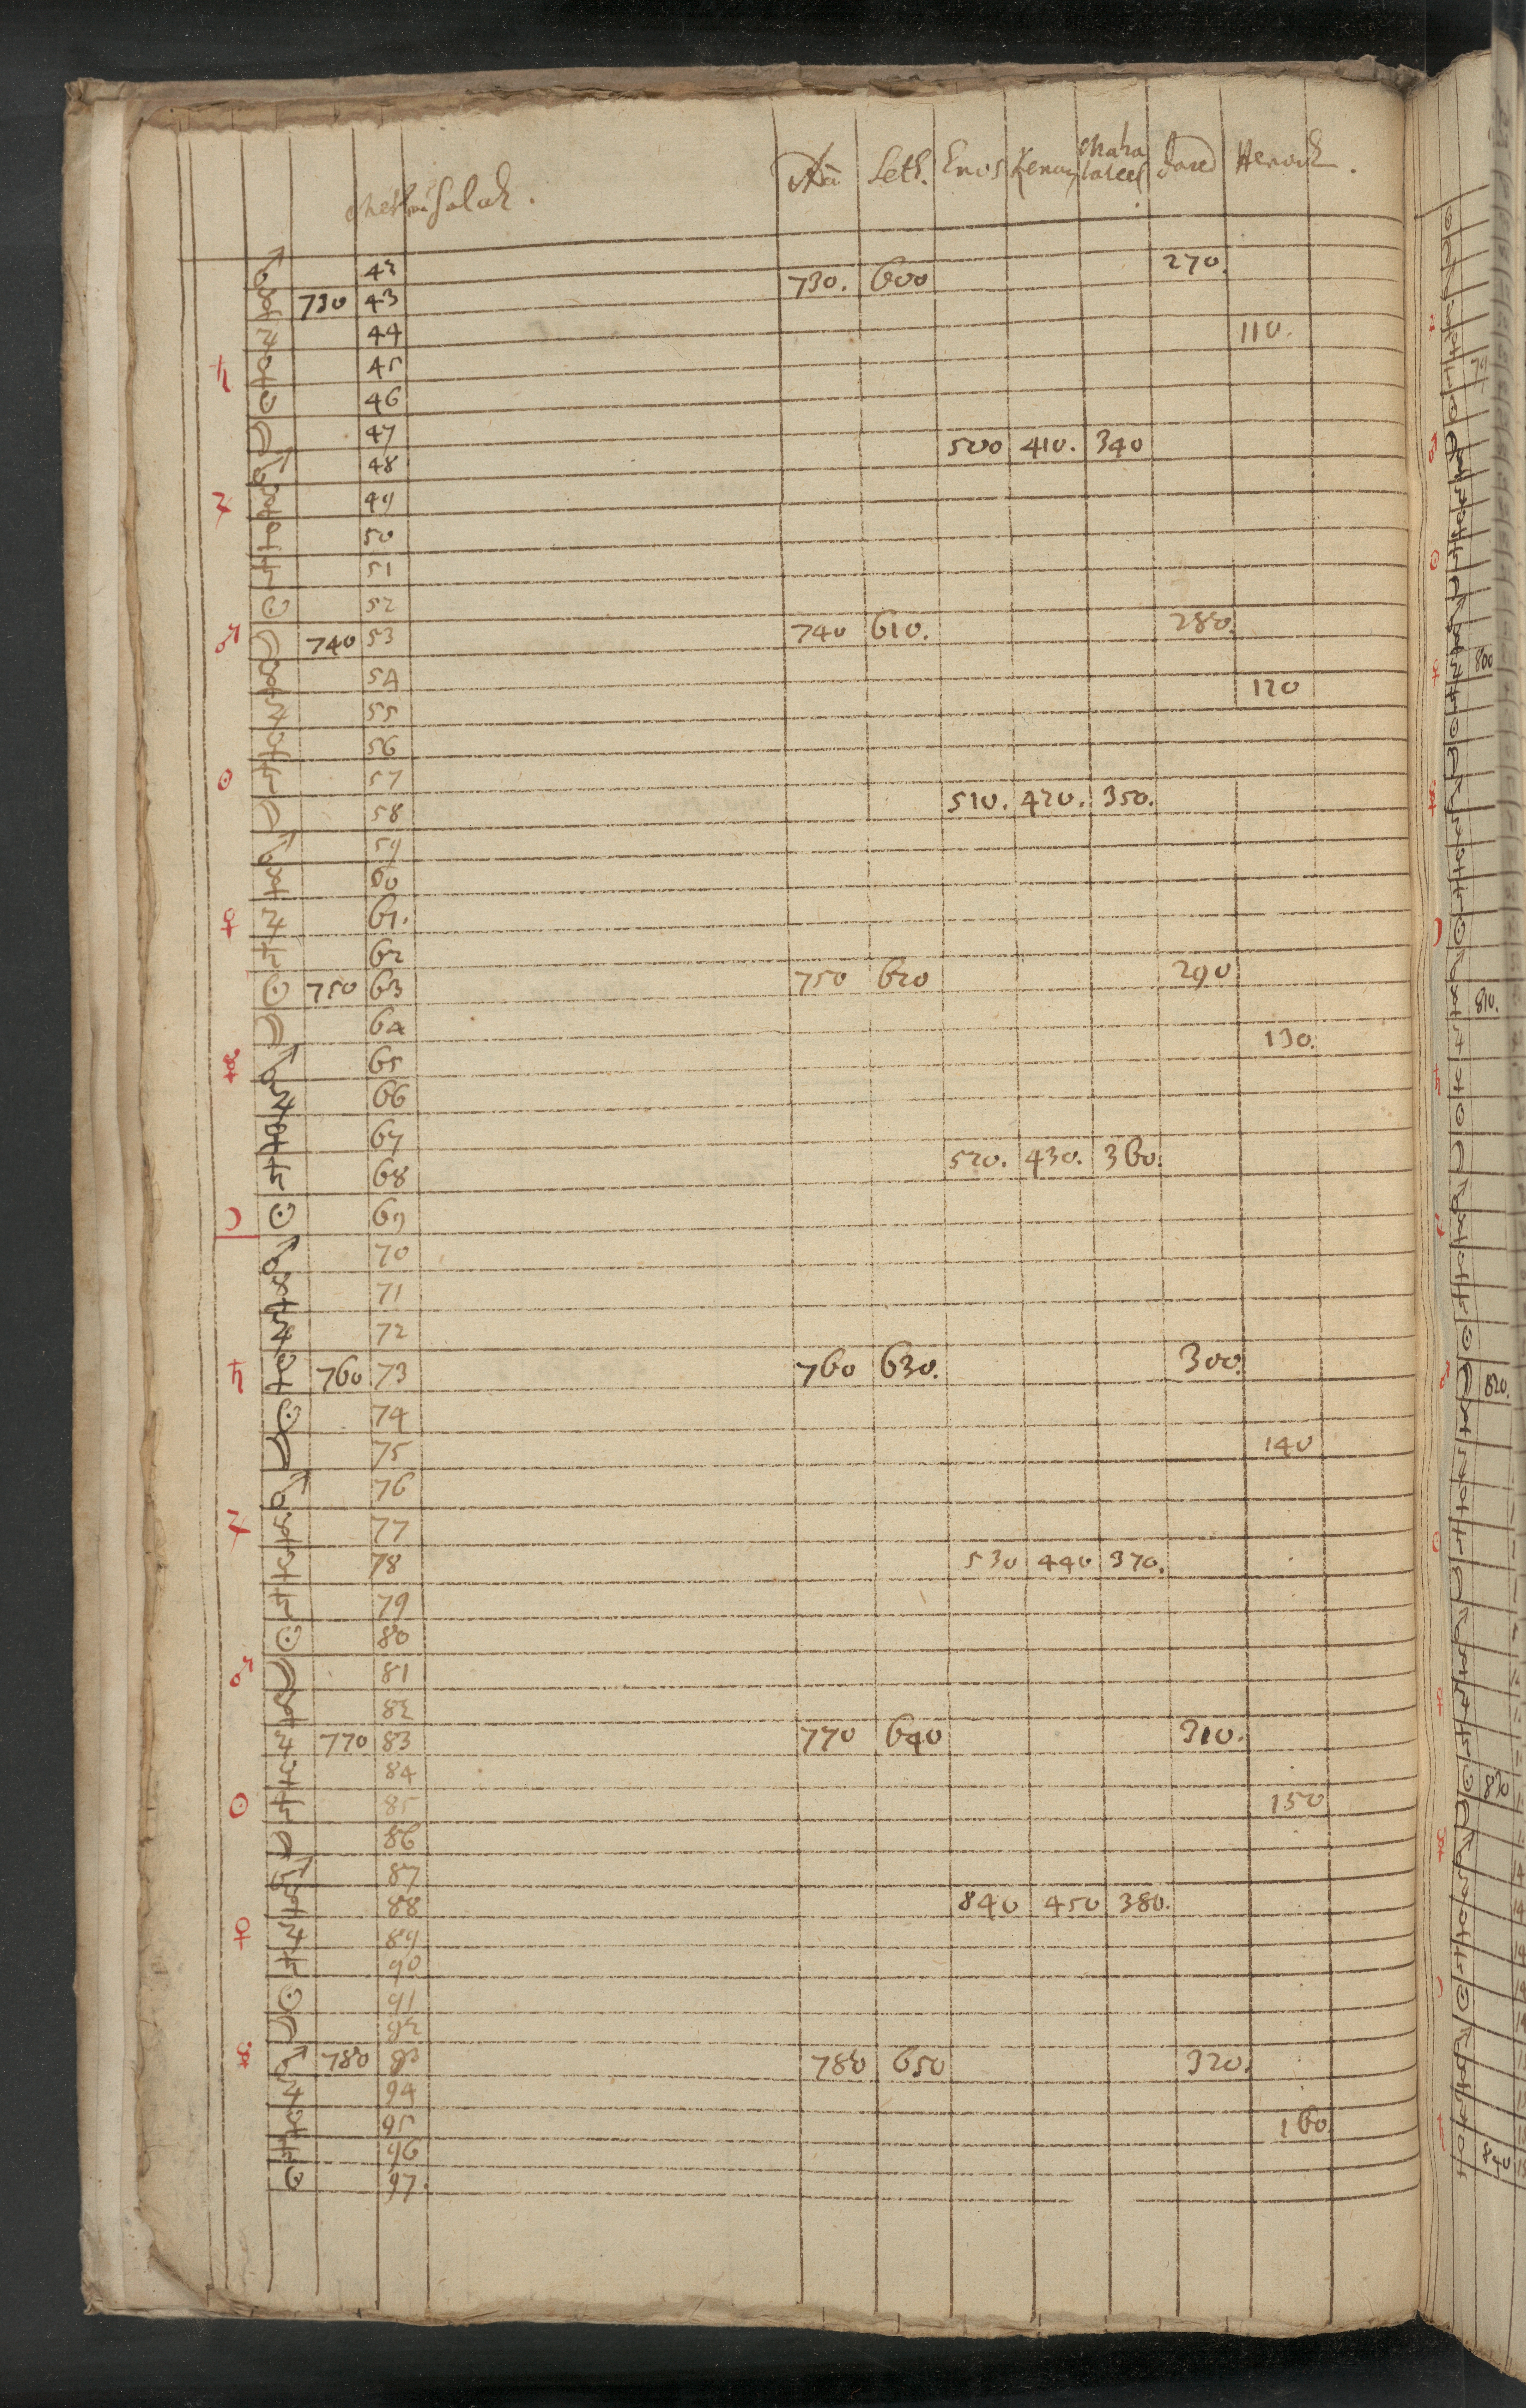 Seth. Enos Kenan Maha Jared Henoch.
laleel
Methusalah.
♂ 42 270.
☿ 730 43 730. 600
♃ 44 110.
♄ ♀ 45
☉ 46
☽ 47 500 410. 340
♂ 48
♃ ☿ 49
♀ 50
♄ 51
☉ 52
♂ ☽ 740 53 740 610. 280.
☿ 54 120
♃ 55
♀ 56
☉ ♄ 57
☽ 58 510. 420. 350.
♂ 59
☿ 60
♀ ♃ 61.
♄ 62
☉ 750 63 750 620 290
☽ 64 130.
☿ ♂ 65
♃ 66
♀ 67
♄ 68 520. 430. 360.
☽ ☉ 69
♂ 70
☿ 71
♃ 72
♄ ♀ 760 73 760 630. 300.
☉ 74
☽ 75 140
♂ 76
♃ ☿ 77
♀ 78 530 440 370.
♄ 79
☉ 80
♂ ☽ 81
☿ 82
♃ 770 83 770 640 310.
♀ 84
☉ ♄ 85 150
☽ 86
♂ 87
☿ 88 840 450 380.
♀ ♃ 89
♄ 90
☉ 91
☽ 92
☿ ♂ 780 93 780 650 320.
♃ 94
♀ 95 160.
♄ 96
☉ 97.
800
810.
820.